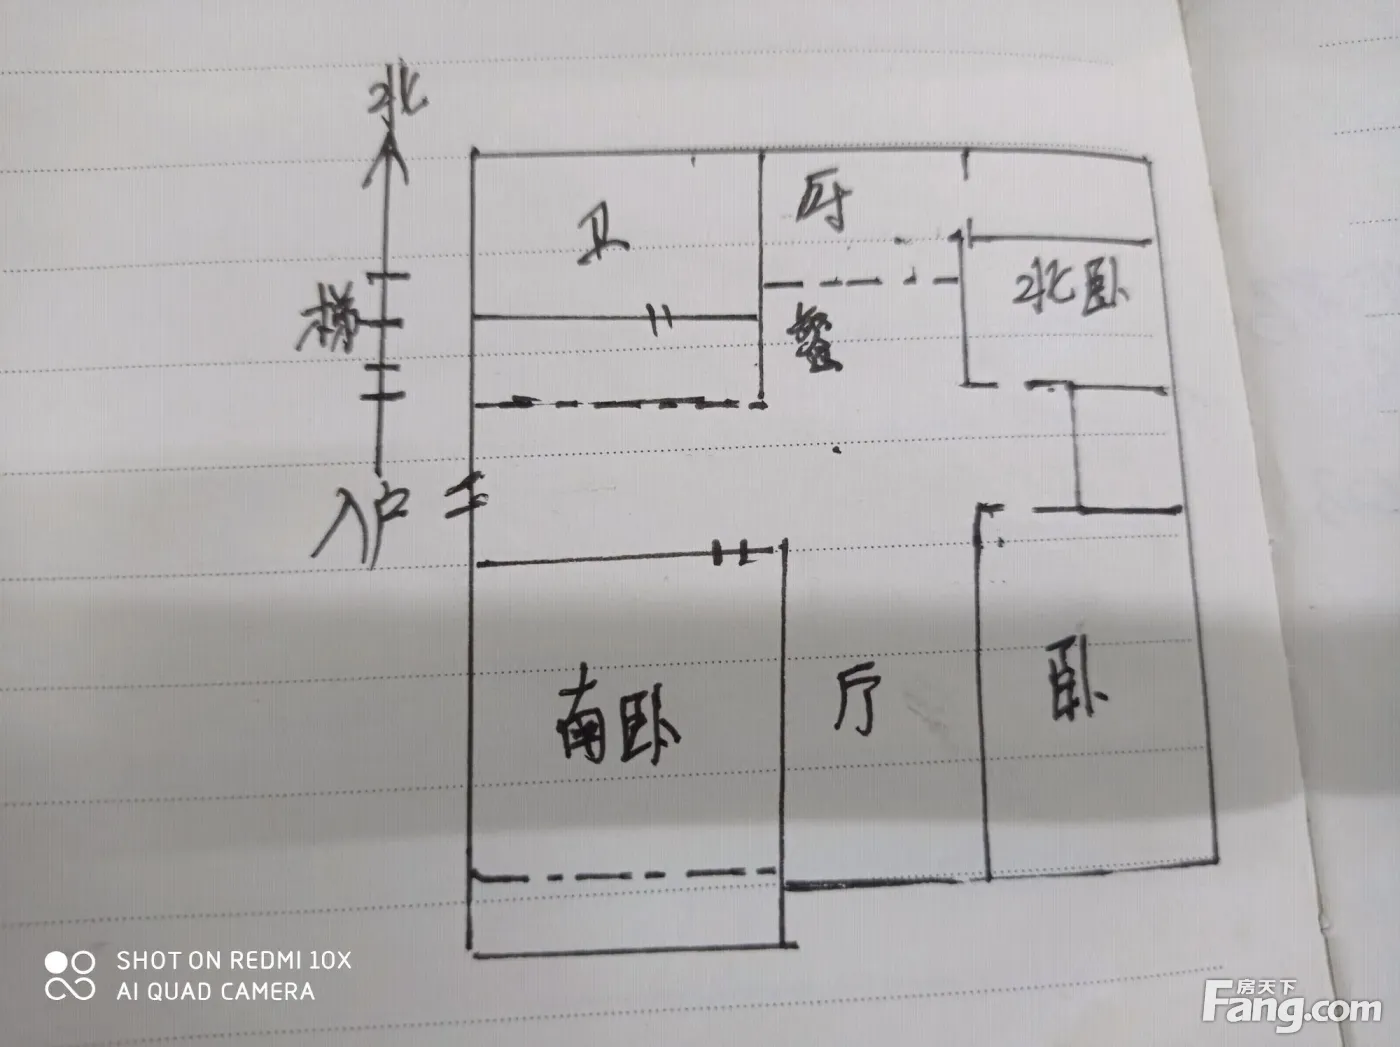 北
卫
厨
北卧
梯
餐
入户
南卧
厅
卧
SHOT ON REDMI 10X
AI QUAD CAMERA
房天下
Fang.com